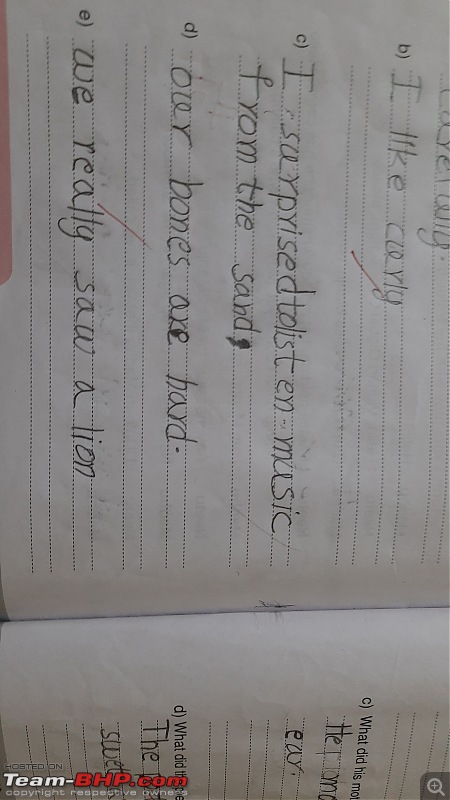 b) I like curly
c) I surprised to listen music
from the sand,
d) our bones are hard.
e) we really saw a lion
c) What did his mot
ear.
d) What did
The
HOSTED ON
Team-BHP.com
copyright respective owners